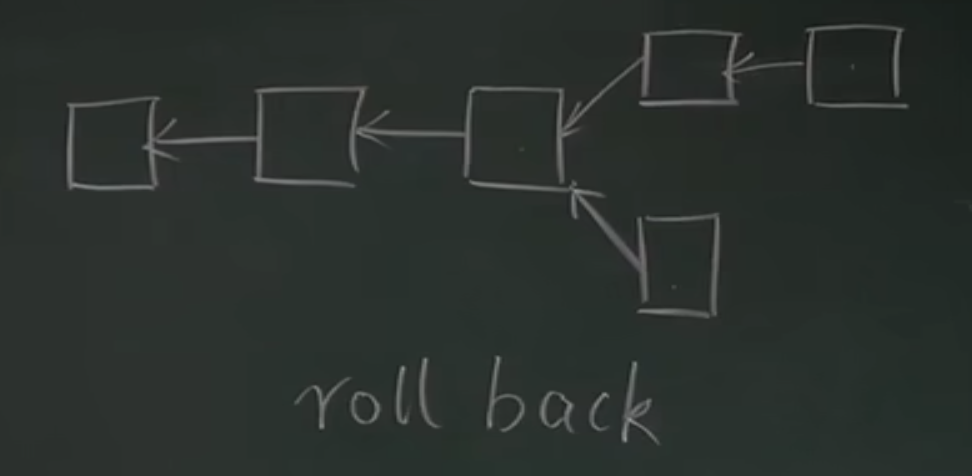 roll back